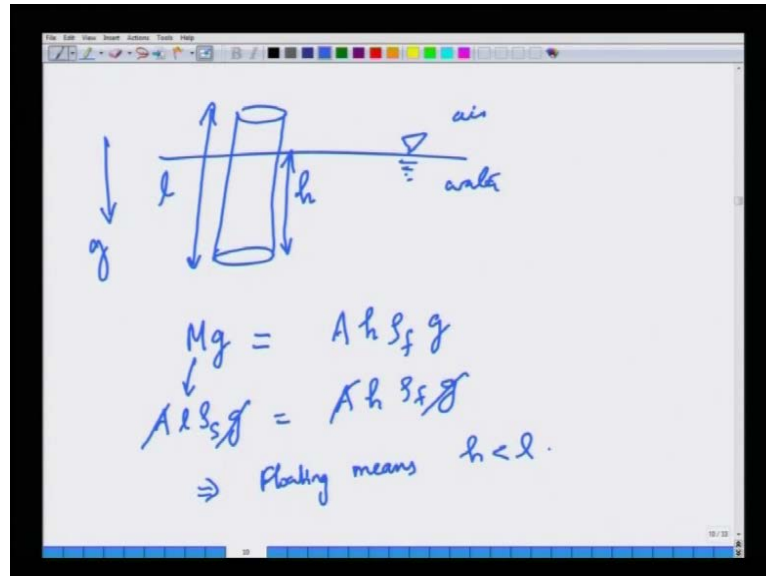 File Edit View Insert Actions Tools Help
B I
air
water
l
h
g
Mg = Ahρ_f g
Alρ_s g = Ahρ_f g
⇒ Floating means h < l.
10
10 / 33